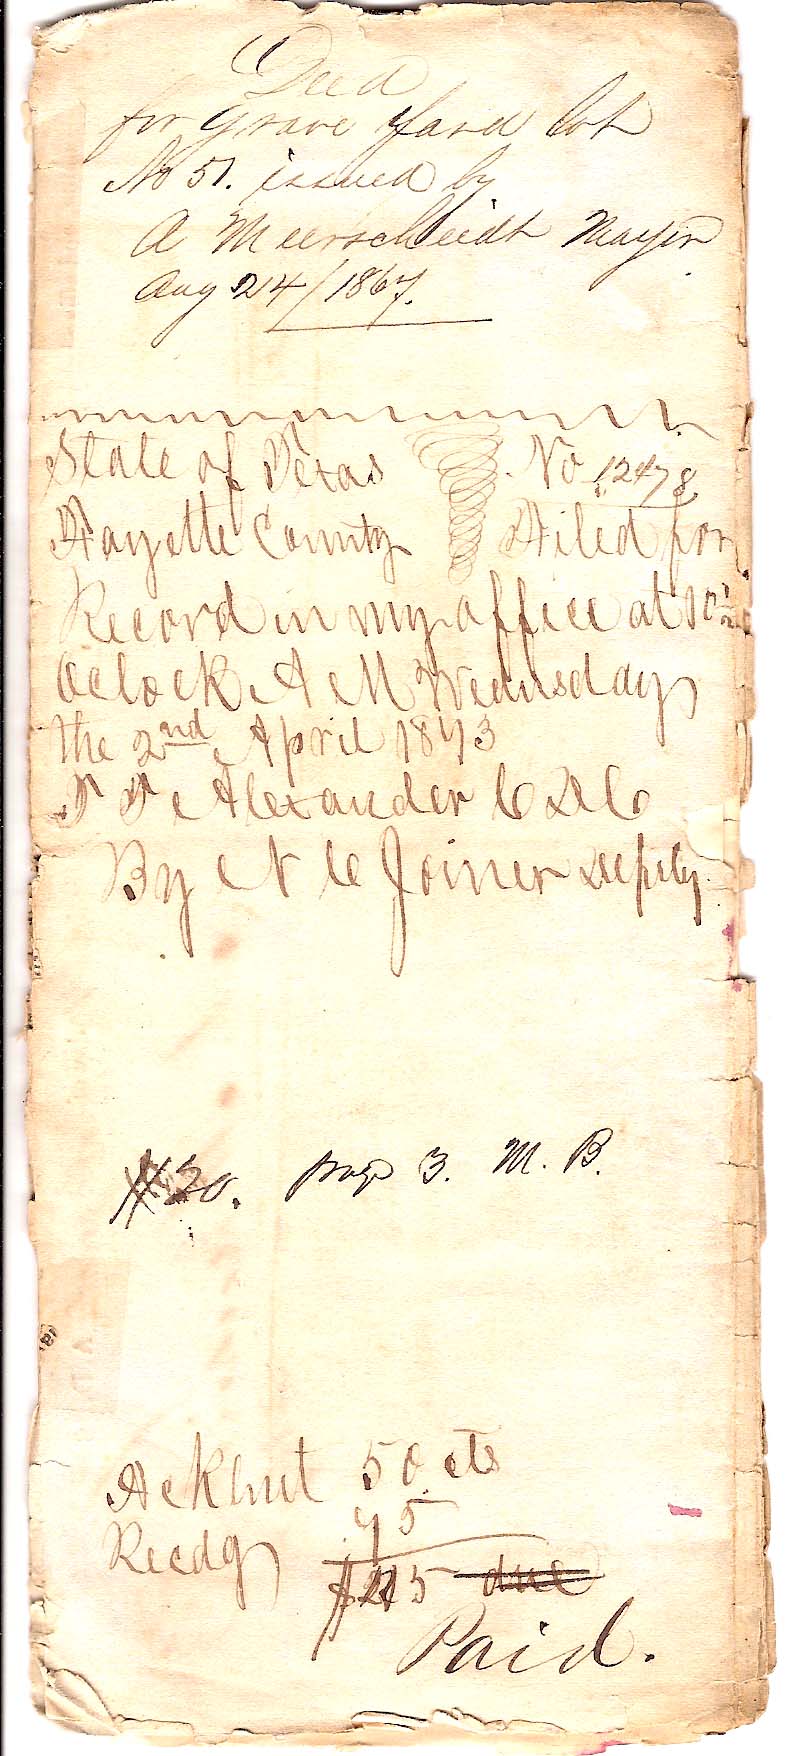 Deed
for Grave Yard lot
No 51. issued by
A Meerscheidt Mayor
Aug 24/1867.
State of Texas No 12478
Fayette County Filed for
Record in my office at 10 1/2
Oclock A M Wednesday
the 2nd April 1873
Alexander C D C
By N C Joiner Deputy
$20. page 3. M. B.
Acklmt 50 cts
Recdg 75
$1 25 due
Paid.